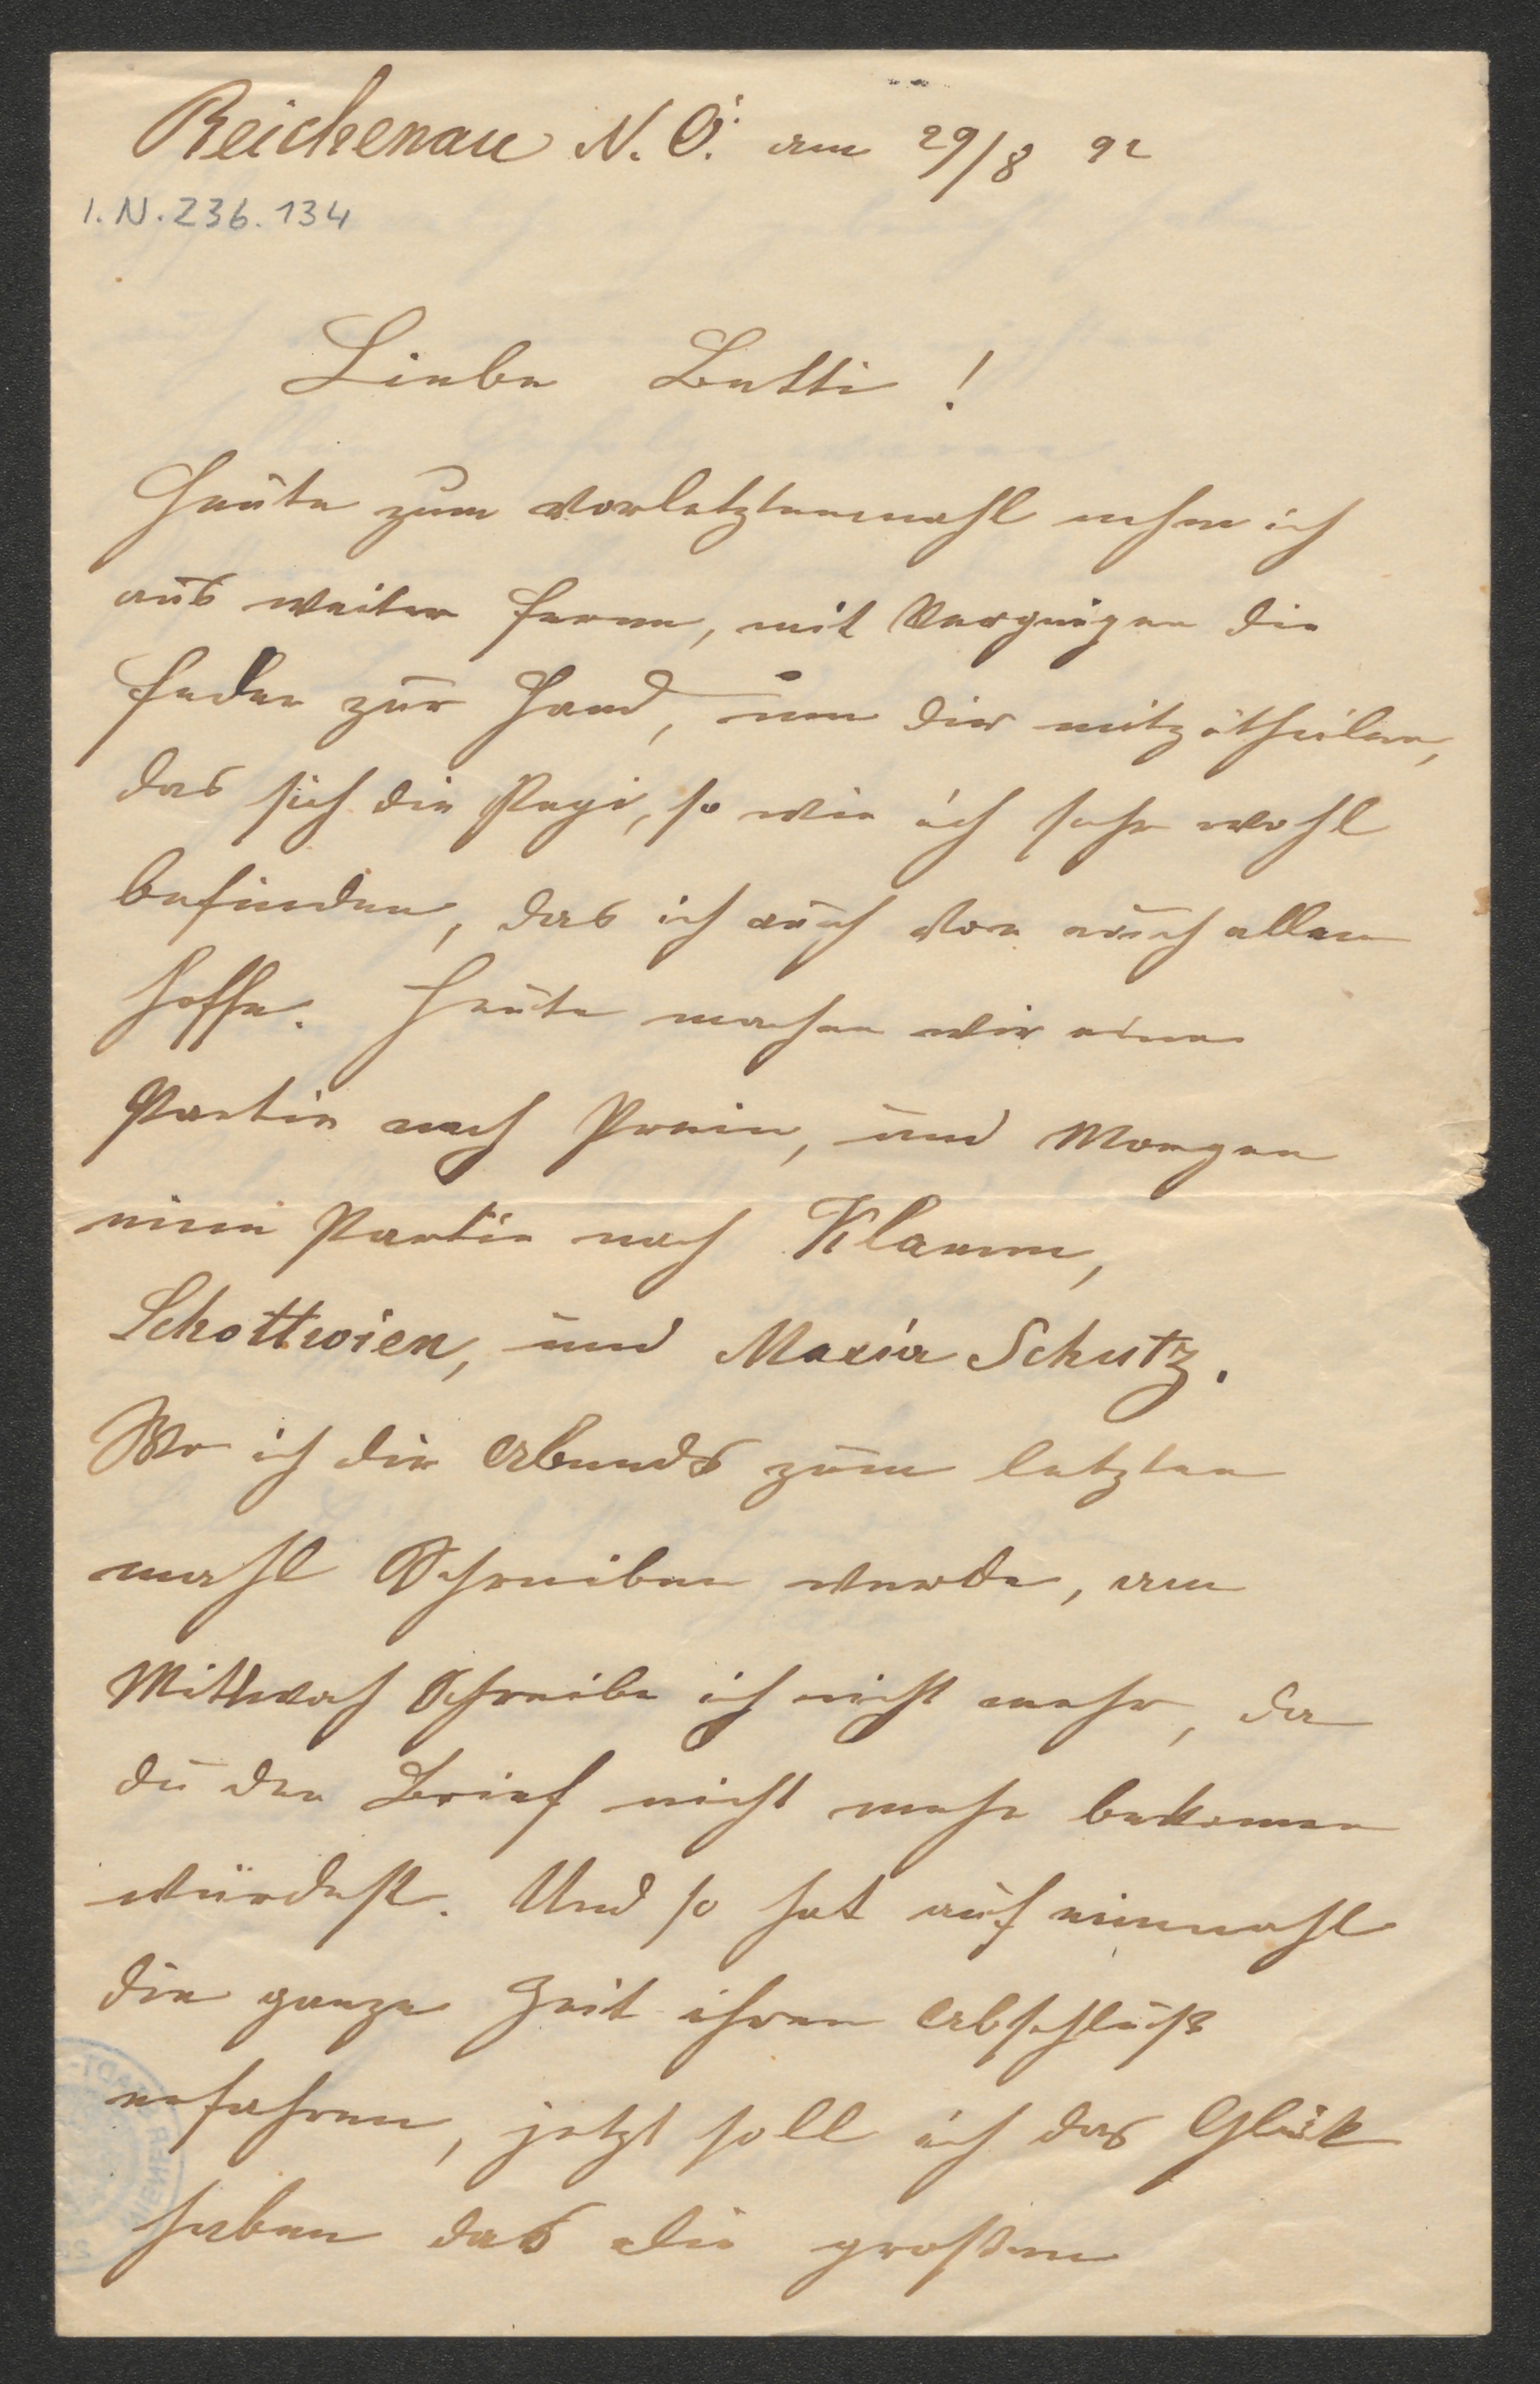 Reichenau N. Ö. am 29/8 92
I.N. 236.134
Liebe Betti!
Heute zum vorletztenmahl nehm ich
aus weiter Ferne, mit Vergnügen die
Feder zur Hand, um dir mitzutheilen,
das sich die Pepi, so wie ich sehr wohl
befinden, das ich auch von euch allen
hoffe. Heute machen wir eine
Partie nach Prein, und Morgen
eine Partie nach Klamm,
Schottwien, und Maria Schutz.
Wo ich dir Abends zum letzten
mahl Schreiben werde, am
Mittwoch Schreibe ich nicht mehr, da
du den Brief nicht mehr bekomen
würdest. Und so hat auf einmahl
die ganze Zeit ihren Abschluß
erfahren, jetzt soll ich das Glük
haben das die großen